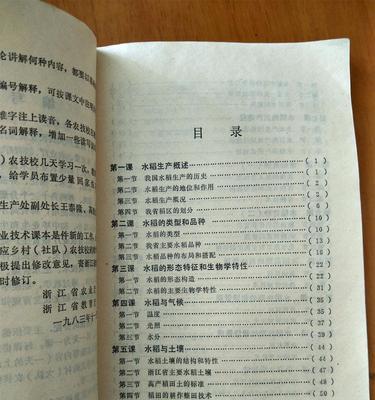 论讲解何种内容，都要以
编号解释，可按课文中
准字注上读音，各农技校
名词解释，增加一些
）农技校几天学习一次，
，给学员布置少量回家
生产处副处长王泰隆，高
业技术课本是件新的工作，
应乡村（社队）农技校
极提出修改意见，寄浙江
时修订。
浙江省农业
浙江省教育
一九八三年十
目 录
第一课 水稻生产概述 （ 1 ）
第一节 我国水稻生产的历史 （ 1 ）
第二节 水稻生产的地位和作用 （ 2 ）
第三节 水稻生产概况 （ 2 ）
第四节 我省稻区的划分 （ 6 ）
第二课 水稻的类型和品种 （ 10 ）
第一节 水稻的类型 （ 10 ）
第二节 我省主要水稻品种 （ 13 ）
第三节 水稻品种的布局和搭配 （ 16 ）
第三课 水稻的形态特征和生物学特性 （ 22 ）
第一节 水稻的形态构造 （ 22 ）
第二节 水稻的主要生物学特性 （ 31 ）
第四课 水稻与气候 （ 35 ）
第一节 温度 （ 35 ）
第二节 光照 （ 37 ）
第三节 水分 （ 39 ）
第五课 水稻与土壤 （ 44 ）
第一节 水稻土壤的结构和特性 （ 44 ）
第二节 浙江省主要水稻土壤 （ 47 ）
第三节 高产稻田土的标准
第四节 稻田的耕作整田技术 （ 50 ）